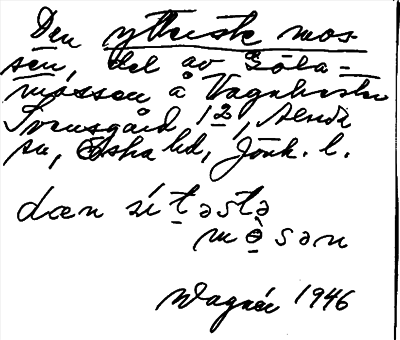 Den ytterste mos-
sen, del av Göla-
mossen å Vagnhester
Svensgård 1², Alseda
sn, Östra hd, Jönk. l.
dæn sítəstə
mòsən
Wagnér 1946